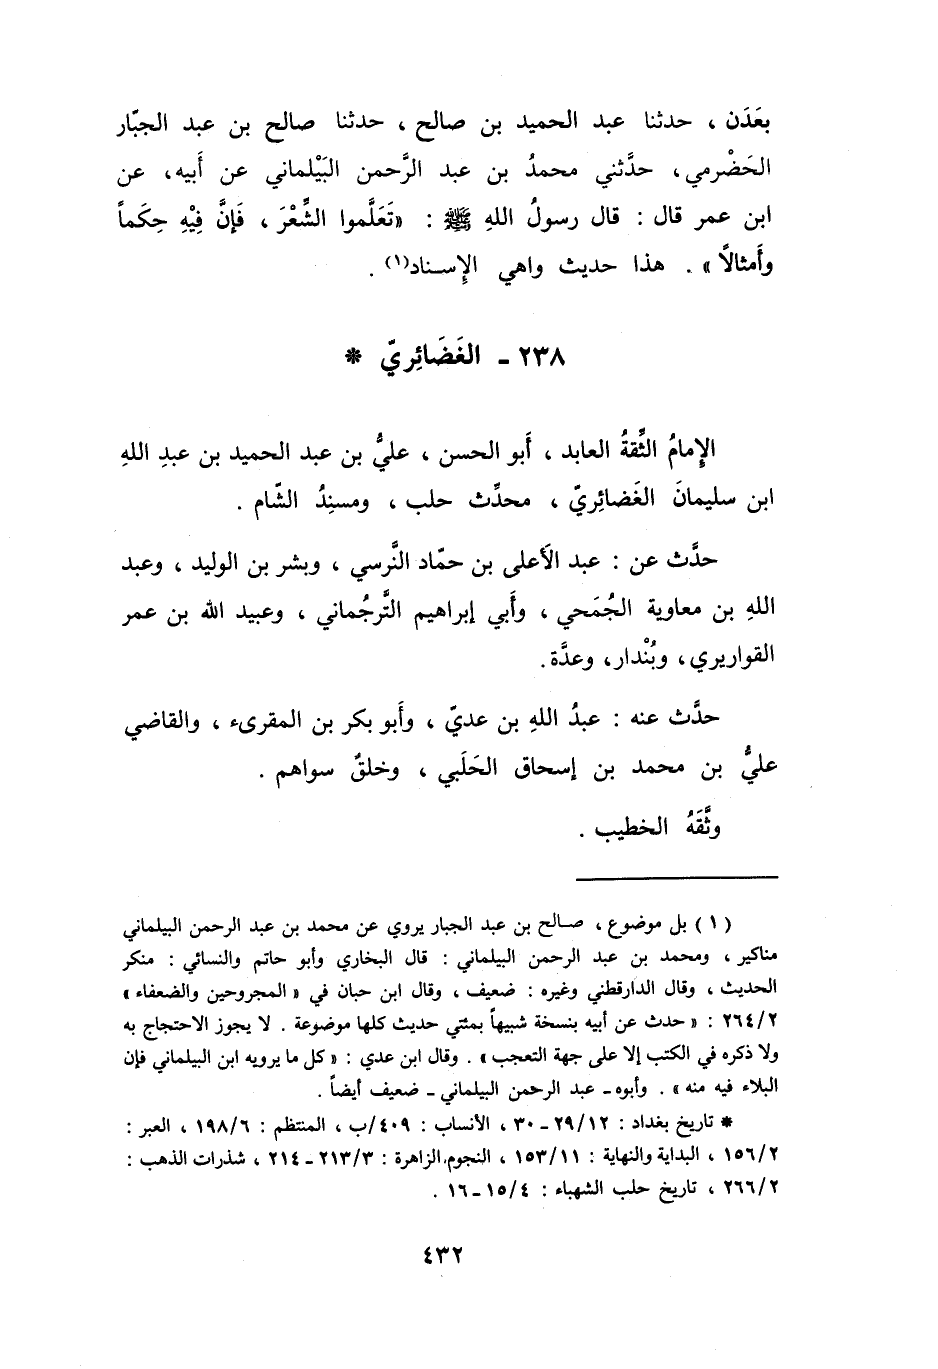 بعَدَن ، حدثنا عبد الحميد بن صالح ، حدثنا صالح بن عبد الجبّار
الحَضْرمي، حدَّثني محمدُ بن عبد الرَّحمن البَيْلماني عن أَبيه، عن
ابن عمر قال : قال رسولُ اللهِ ﷺ : «تَعَلَّموا الشِّعْرَ ، فَإنَّ فِيْهِ حِكَماً
وأَمثالاً» . هذا حديث واهي الإِسـناد(١) .
٢٣٨ ـ الغَضَائِريّ *
الإِمامُ الثِّقةُ العابد ، أَبو الحسن ، عليُّ بن عبد الحميد بن عبدِ اللهِ
ابن سليمانَ الغَضائِريّ ، محدِّث حلب ، ومسنِدُ الشّام .
حدَّث عن : عبد الأَعلى بن حمّاد النَّرسي ، وبشر بن الوليد ، وعبد
اللهِ بن معاوية الجُمَحي ، وأَبي إبراهيم التَّرجُماني ، وعبيد الله بن عمر
القواريري، وبُنْدار، وعدَّة.
حدَّث عنه : عبدُ اللهِ بن عديّ ، وأَبو بكر بن المقرىء ، والقاضي
عليُّ بن محمد بن إسحاق الحَلَبي ، وخلقٌ سواهم .
وثَّقَهُ الخطيب .
(١) بل موضوع ، صـالح بن عبد الجبار يروي عن محمد بن عبد الرحمن البيلماني
مناكير ، ومحمد بن عبد الرحمن البيلماني : قال البخاري وأبو حاتم والنسائي : منكر
الحديث ، وقال الدارقطني وغيره : ضعيف ، وقال ابن حبان في «المجروحين والضعفاء»
٢٦٤/٢ : «حدث عن أبيه بنسخة شبيهاً بمئتي حديث كلها موضوعة . لا يجوز الاحتجاج به
ولا ذكره في الكتب إلا على جهة التعجب» . وقال ابن عدي : «كل ما يرويه ابن البيلماني فإن
البلاء فيه منه» . وأبوه ـ عبد الرحمن البيلماني ـ ضعيف أيضاً .
* تاريخ بغداد : ٢٩/١٢ ـ ٣٠ ، الأنساب : ٤٠٩/ب ، المنتظم : ١٩٨/٦ ، العبر :
١٥٦/٢ ، البداية والنهاية : ١٥٣/١١ ، النجوم الزاهرة : ٢١٣/٣ ـ ٢١٤ ، شذرات الذهب :
٢٦٦/٢ ، تاريخ حلب الشهباء : ١٥/٤ ـ ١٦ .
٤٣٢